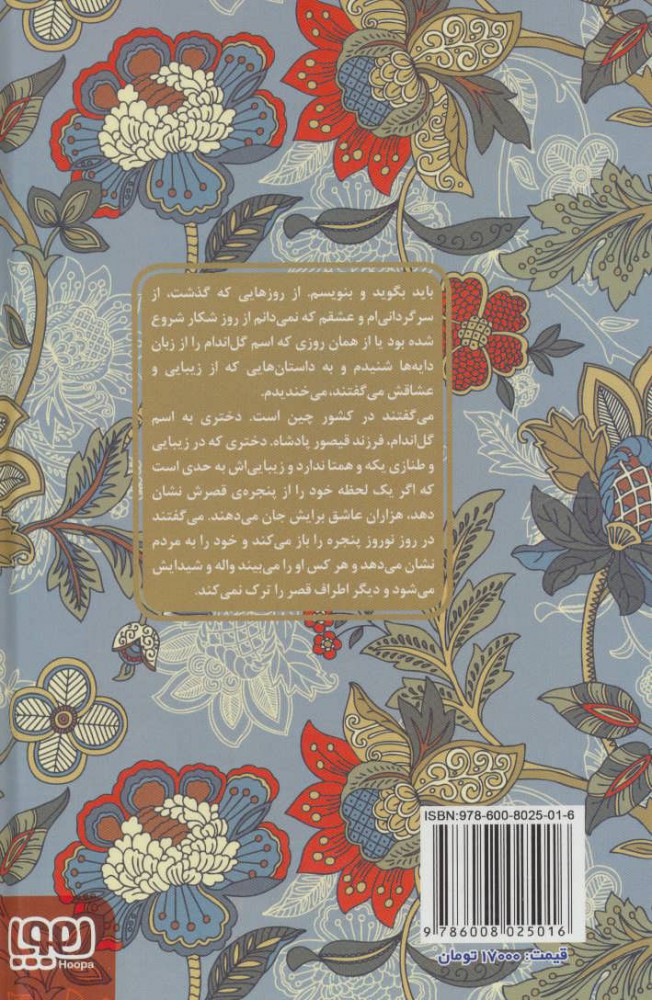 باید بگوید و بنویسم. از روزهایی که گذشت، از
سرگردانی‌ام و عشقم که نمی‌دانم از روز شکار شروع
شده بود یا از همان روزی که اسم گل‌اندام را از زبان
دایه‌ها شنیدم و به داستان‌هایی که از زیبایی و
عشاقش می‌گفتند، می‌خندیدم.
می‌گفتند در کشور چین است. دختری به اسم
گل‌اندام، فرزند قیصور پادشاه. دختری که در زیبایی
و طنازی یکه و همتا ندارد و زیبایی‌اش به حدی است
که اگر یک لحظه خود را از پنجره‌ی قصرش نشان
دهد، هزاران عاشق برایش جان می‌دهند. می‌گفتند
در روز نوروز پنجره را باز می‌کند و خود را به مردم
نشان می‌دهد و هر کس او را می‌بیند واله و شیدایش
می‌شود و دیگر اطراف قصر را ترک نمی‌کند.
ISBN:978-600-8025-01-6
9 786008 025016
قیمت: ۱۷۰۰۰ تومان
هوپا
Hoopa